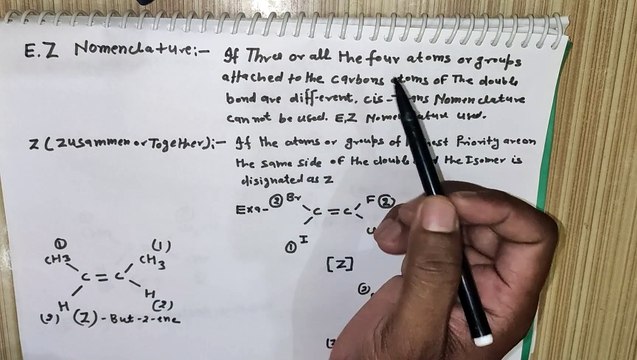 E.Z Nomenclature:-
If Three or all the four atoms or groups
attached to the carbons atoms of The double
bond are different, cis- Nomenclature
can not be used. E.Z used.
Z (Zusammen or Together):-
If the atoms or groups of Priority are on
the same side of the double the Isomer is
disignated as Z
Exa- ② Br F ②
C = C
① I
[Z]
① (1)
CH3 CH3
C = C
H H
(2) (2)
(Z) - But-2-ene